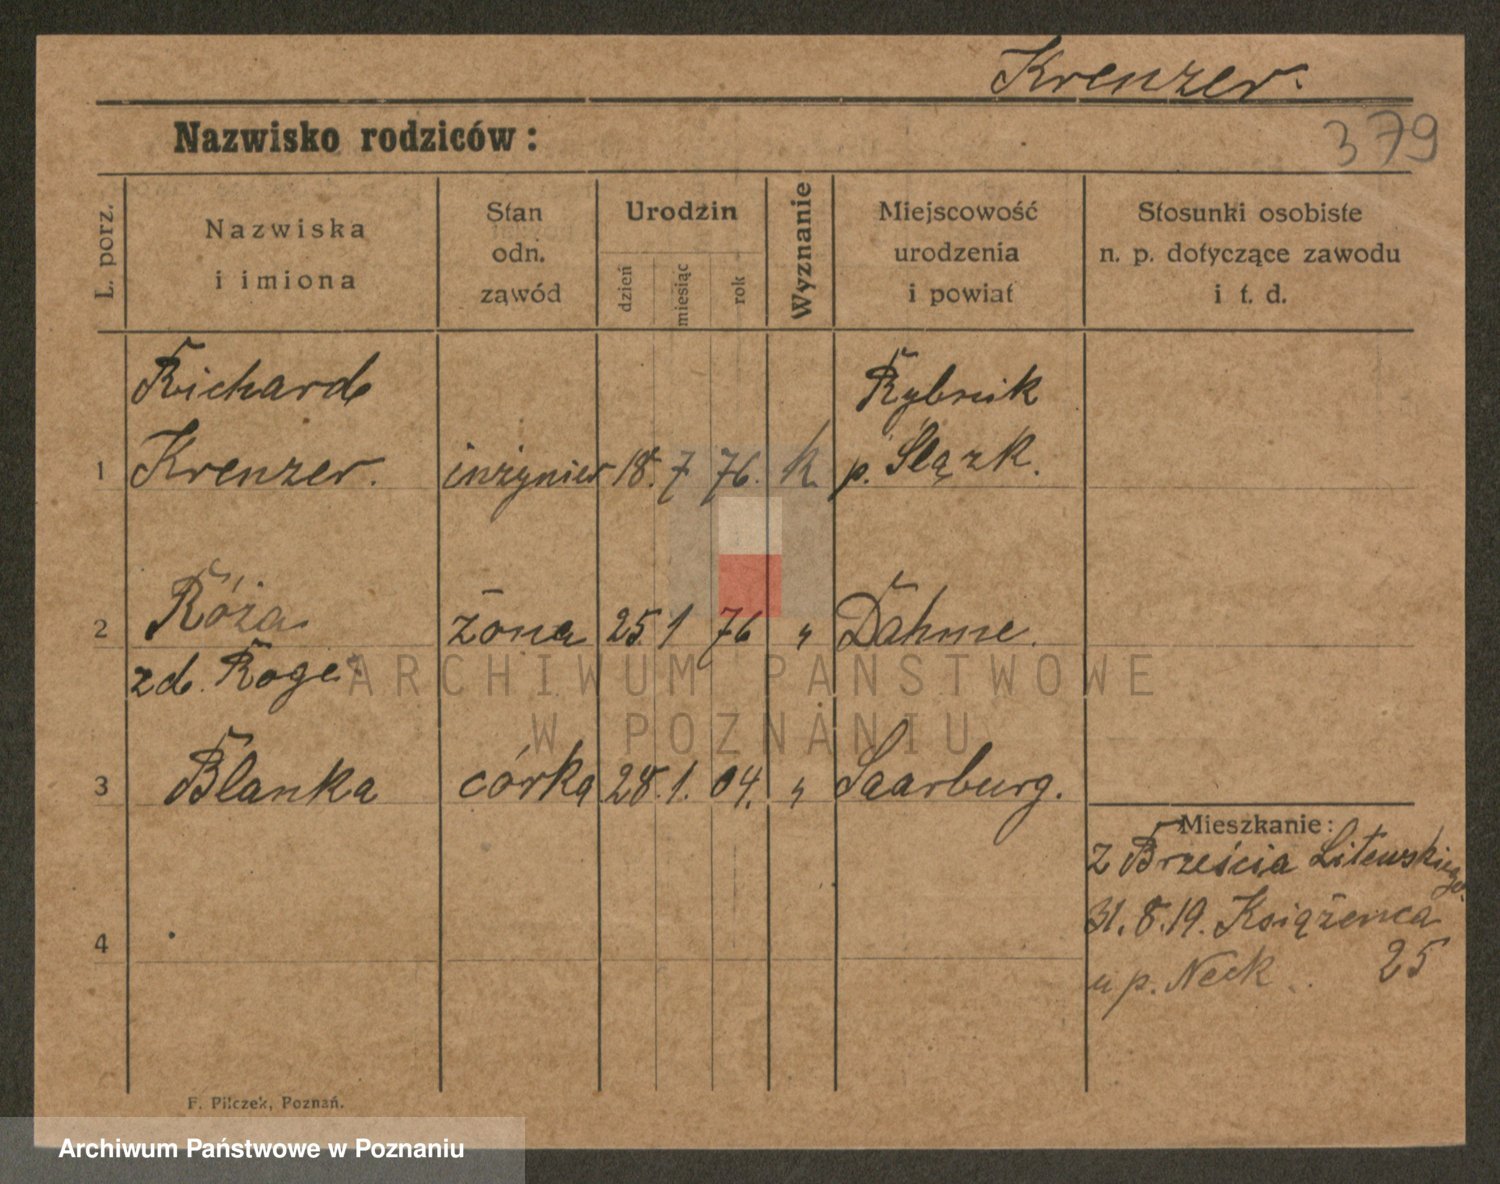 Krenzer.
379
Nazwisko rodziców:
L. porz.
Nazwiska
i imiona
Stan
odn.
zawód
Urodzin
dzień
miesiąc
rok
Wyznanie
Miejscowość
urodzenia
i powiat
Stosunki osobiste
n. p. dotyczące zawodu
i t. d.
Richard Rybnik
1 Krenzer. inżynier 18. 7 76. k. p. Slązk.
2 Róża żona 25. 1 76 " Dahme.
zd. Roge
3 Blanka córka 28. 1. 04. " Saarburg.
Mieszkanie:
z Brześcia Litewskiego
31. 8. 19. Książenca
4
u p. Neck 25
F. Pilczek, Poznań.
ARCHIWUM PAŃSTWOWE
W POZNANIU
Archiwum Państwowe w Poznaniu